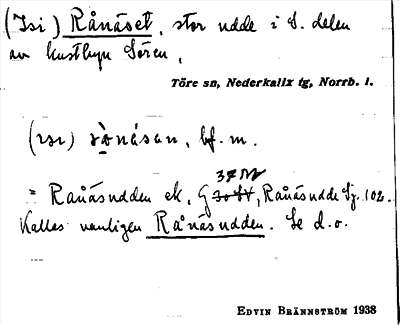 (Isi) Rånäset, stor udde i S. delen
av kustbyn Sören,
Töre sn, Nederkalix tg, Norrb. l.
bf. m.
= Rånäsudden ek, G 30 34, Rånäsudde Sj. 102.
37 NV
Kallas vanligen Rånäsudden. Se d.o.
EDVIN BRÄNNSTRÖM 1938